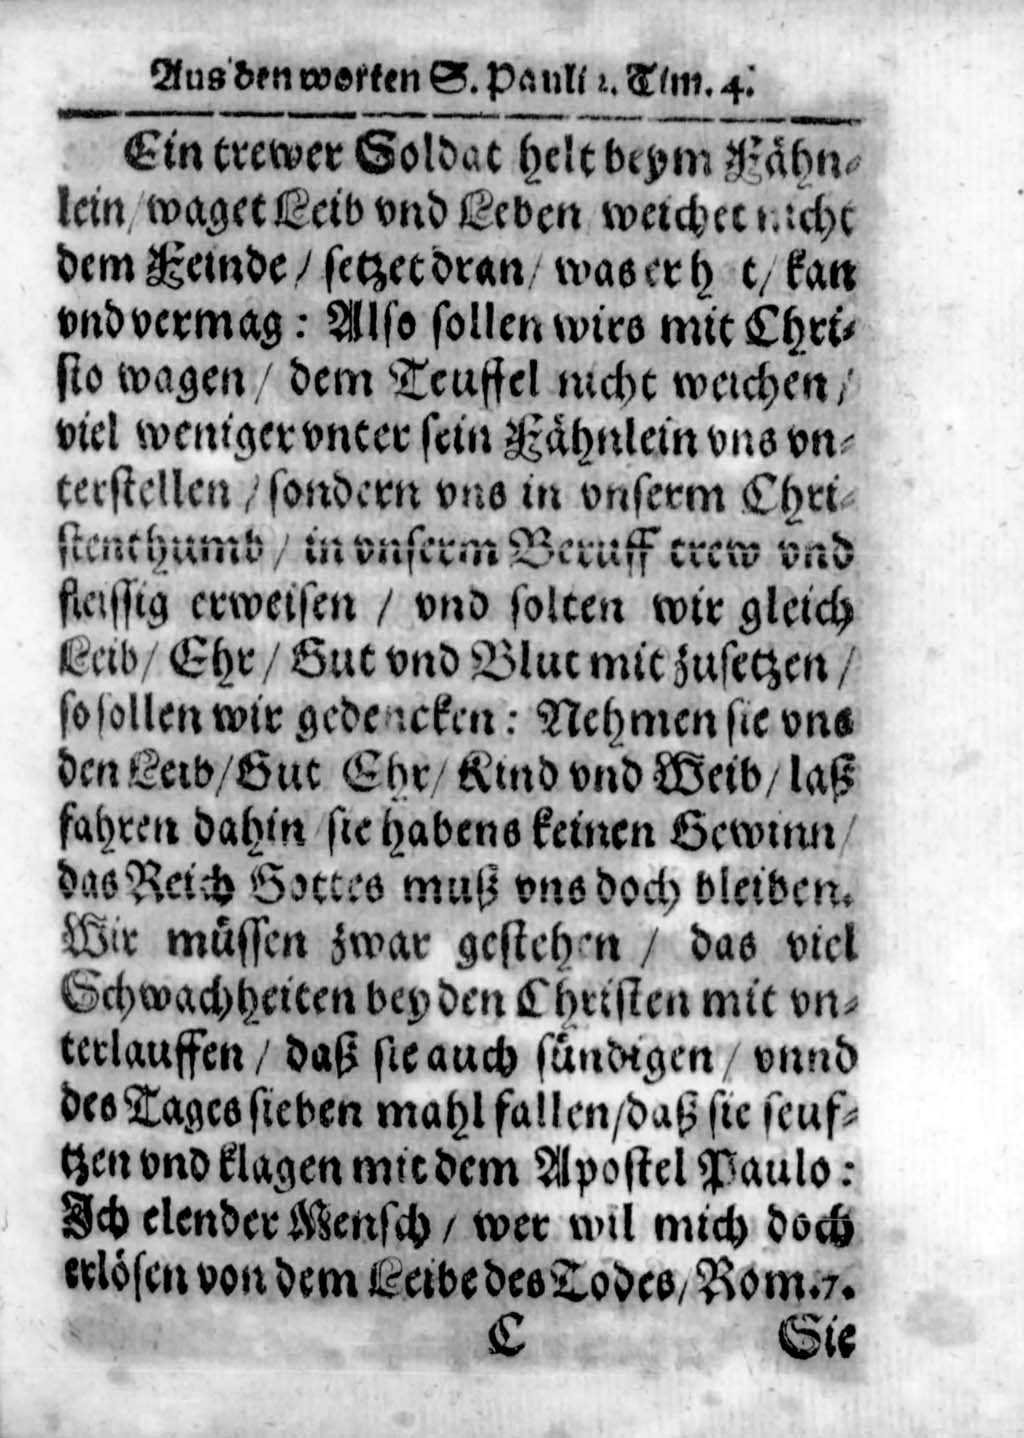 Aus den worten S. Pauli 2. Tim. 4.
Ein trewer Soldat helt beym Fähn-
lein/waget Leib vnd Leben weichet nicht
dem Feinde / setzet dran/ was er h t/ kan
vnd vermag : Also sollen wirs mit Chri-
sto wagen / dem Teuffel nicht weichen /
viel weniger vnter sein Fähnlein vns vn-
terstellen / sondern vns in vnserm Chri-
stenthumb / in vnserm Beruff trew vnd
fleissig erweisen / vnd solten wir gleich
Leib/ Ehr / Gut vnd Blut mit zusetzen /
so sollen wir gedencken : Nehmen sie vns
den Leib/Gut Ehr/ Kind vnd Weib/ laß
fahren dahin /sie habens keinen Gewinn/
das Reich Gottes muß vns doch bleiben.
Wir müssen zwar gestehen / das viel
Schwachheiten bey den Christen mit vn-
terlauffen / daß sie auch sündigen / vnnd
des Tages sieben mahl fallen/daß sie seuf-
tzen vnd klagen mit dem Apostel Paulo :
Ich elender Mensch / wer wil mich doch
erlösen von dem Leibe des Todes/ Rom.7.
C Sie